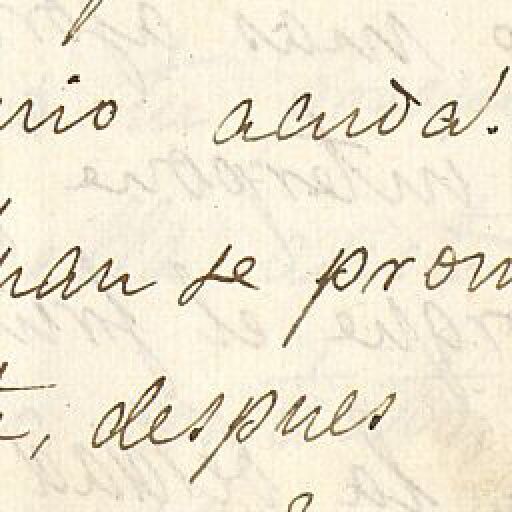 rio acuda!.
han se pron
, despues